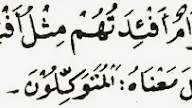 أَفْئِدَتُهُمْ مِثْلُ
مَعْنَاهُ: الْمُتَوَكِّلُوْنَ۔